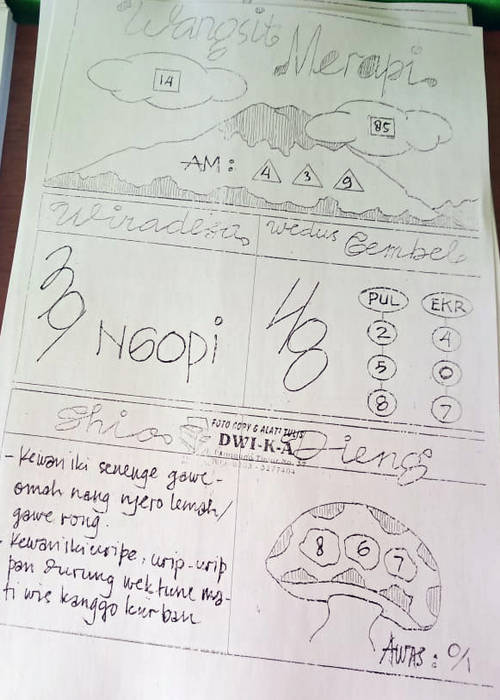 Wangsit
Merapi
14
85
AM : 4 3 9
Wiradesa
wedus Gembel
39
NGOPI
48
PUL EKR
2 4
5 0
8 7
Shio
Dieng
FOTO COPY & ALAT TULIS
DWI-K-A
- Kewan iki senenge gawe
omah nang njero lemah/
gawe rong.
- Kewan iki uripe, urip-urip
pan durung wektune ma-
ti wis kanggo kurban
8 6 7
AWAS : 0/1